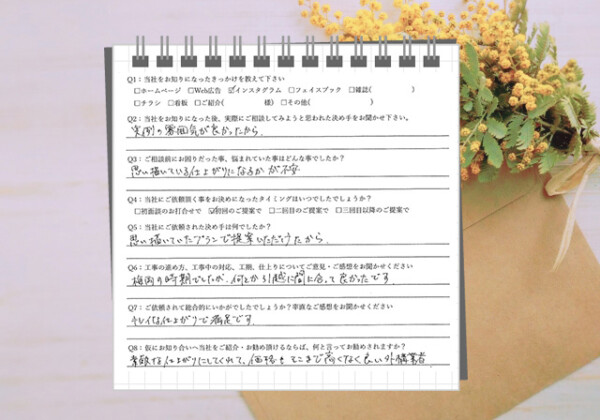 Q1：当社をお知りになったきっかけを教えて下さい
□ホームページ □Web広告 ☑インスタグラム □フェイスブック □雑誌( )
□チラシ □看板 □ご紹介( 様) □その他( )
Q2：当社をお知りになった後、実際にご相談してみようと思われた決め手をお聞かせ下さい。
実例の雰囲気が良かったから。
Q3：ご相談前にお困りだった事、悩まれていた事はどんな事でしたか？
思い描いている仕上がりになるかが不安
Q4：当社にご依頼頂く事をお決めになったタイミングはいつでしたでしょうか？
□初面談のお打合せで ☑初回のご提案で □二回目のご提案で □三回目以降のご提案で
Q5：当社にご依頼された決め手は何でしたか？
思い描いていたプランで提案いただけたから。
Q6：工事の進め方、工事中の対応、工期、仕上りについてご意見・ご感想をお聞かせください
梅雨の時期でしたが、何とか引越に間に合って良かったです。
Q7：ご依頼されて総合的にいかがでしたでしょうか？率直なご感想をお聞かせください
キレイな仕上がりで満足です。
Q8：仮にお知り合いへ当社をご紹介・お勧め頂けるならば、何と言ってお勧めされますか？
素敵な仕上がりにしてくれて、価格もそこまで高くなく良い外構業者。